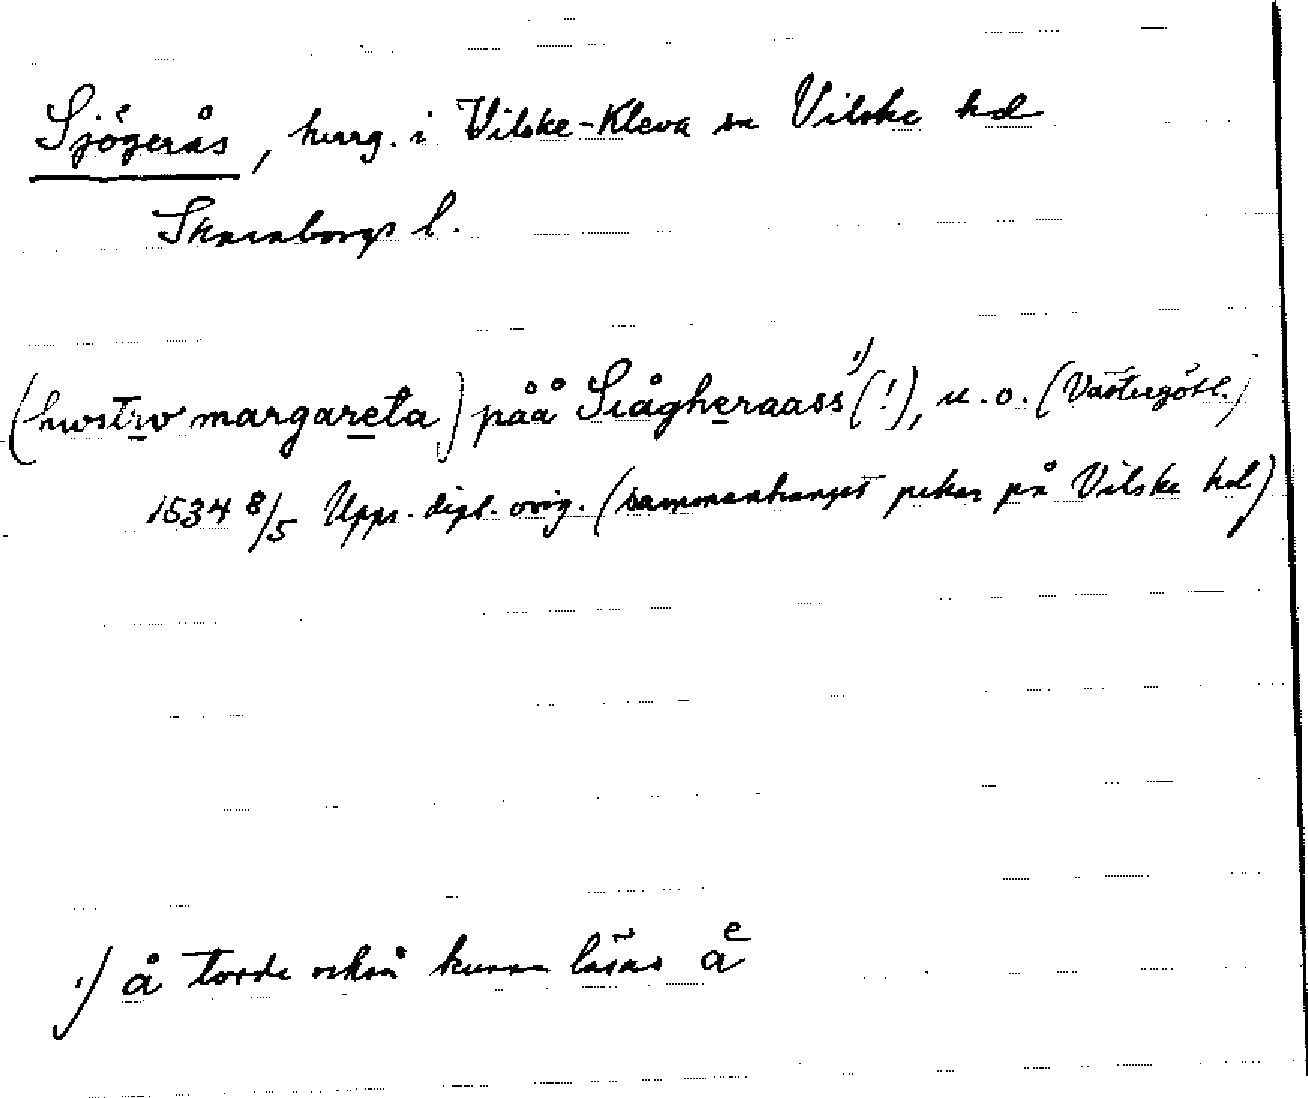 Sjögerås, herrg. i Vilske-Kleva sn Vilske hd
Skaraborgs l.
(hwstrv margareta) påå Siågheraass¹⁾(!), u.o. (Västergötl.)
1534 8/5 Upps. dipl. orig. (sammanhanget pekar på Vilske hd)
¹⁾ å torde också kunna läsas aͤ